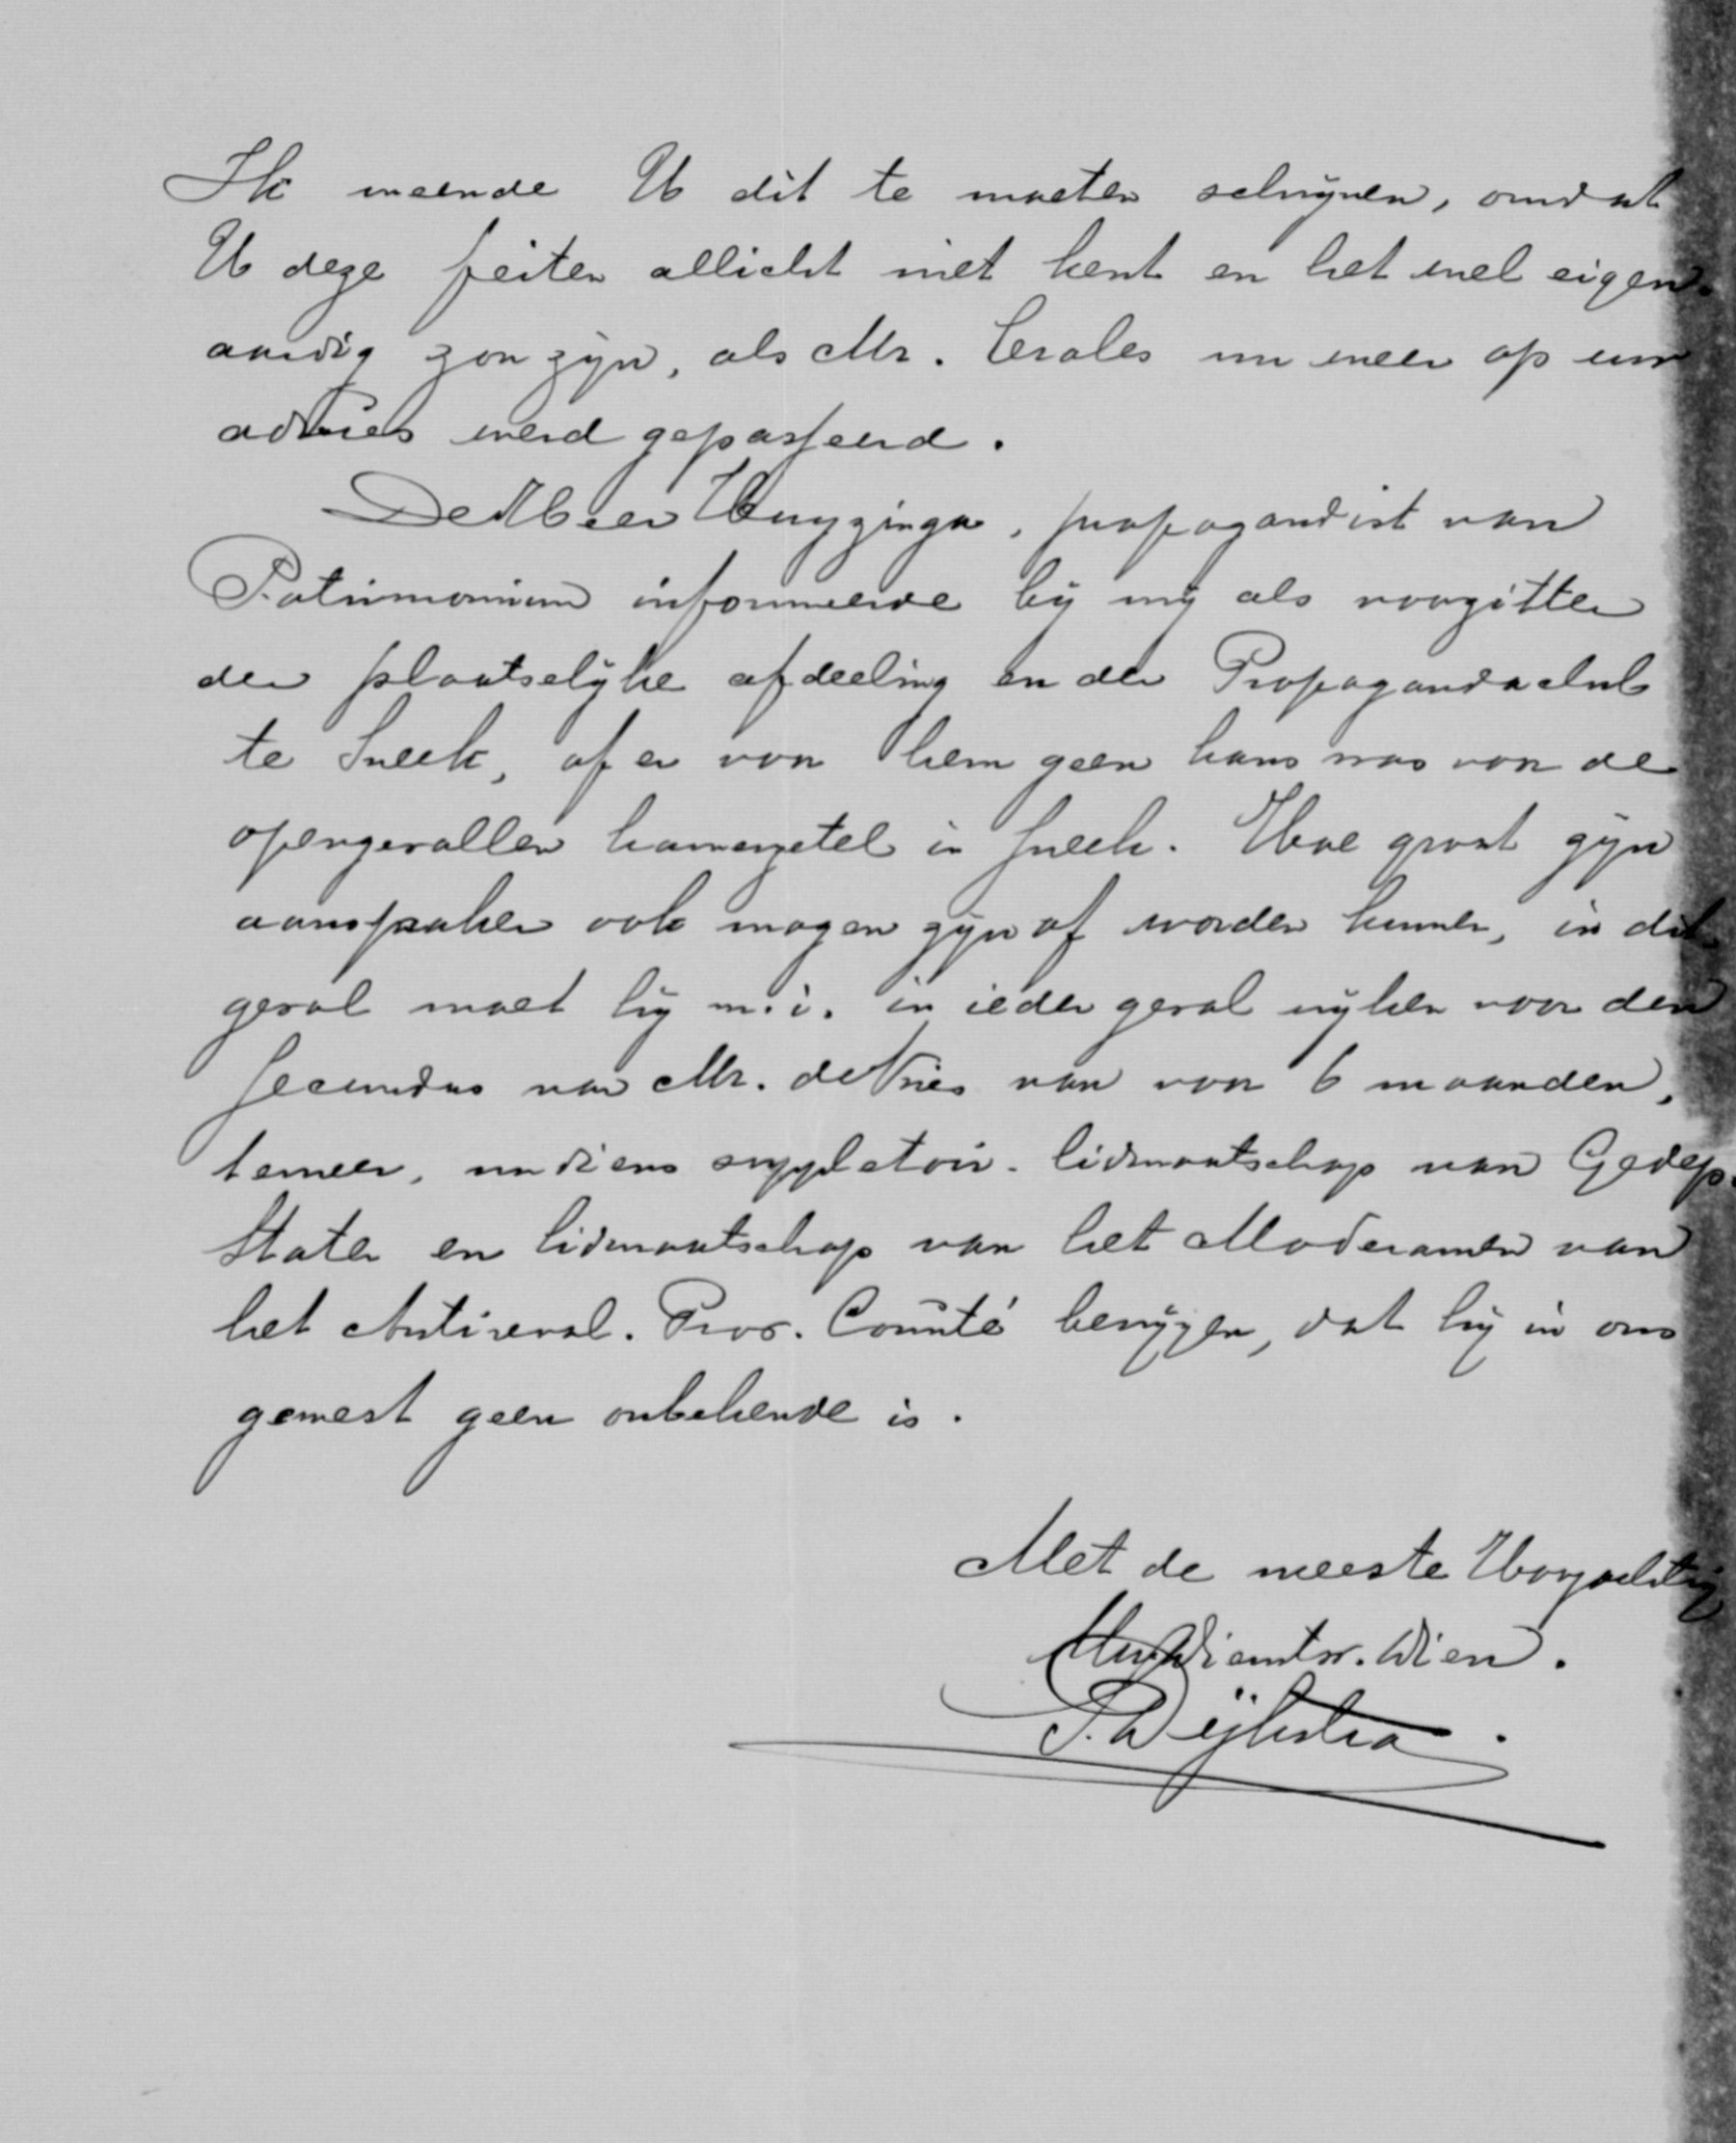 Ik meende U dit te moeten schrijven, omdat
U deze feiten allicht niet kent en het wel eigen-
aardig zou zijn, als Mr. Okma nu weer op uw
advies werd gepasseerd.
De Heer Huyzinga, propagandist van
Patrimonium informeerde bij mij als voorzitter
der plaatselijke afdeeling en der Propagandaclub
te Sneek, of er voor hem geen kans was voor de
opengevallen kamerzetel in Sneek. Hoe groot zijn
aanspraken ook mogen zijn of worden kunnen, in dit
geval moet hij m.i. in ieder geval wijken voor den
secundus van Mr. de Vries van voor 6 maanden,
temeer, nu diens suppletoir-lidmaatschap van Gedep.
Staten en lidmaatschap van het Moderamen van
het Antirevol. Prov. Comité bewijzen, dat hij in ons
gewest geen onbekende is.
Met de meeste Hoogachting
Uw Dienstw. Dien.
S. Dijkstra.